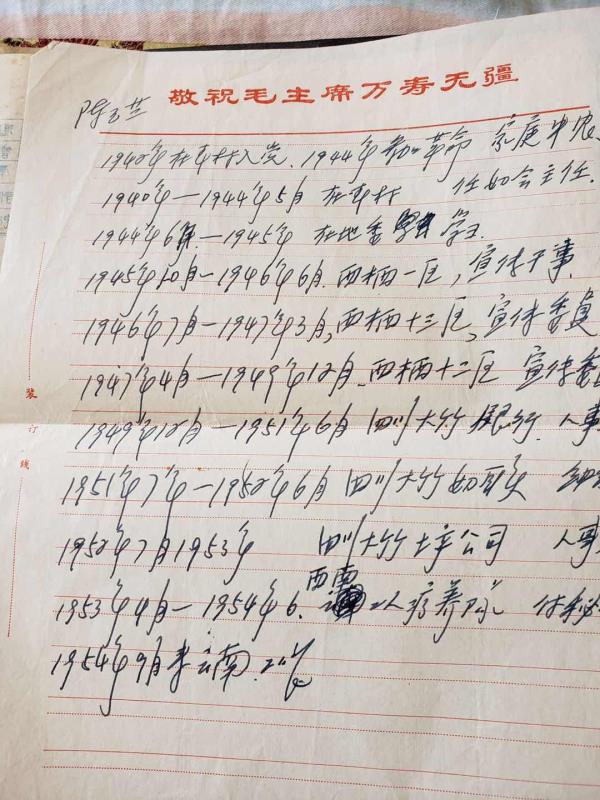 敬祝毛主席万寿无疆
陈玉兰
1940年在本村入党、1944年参加革命 家庭中农
1940年—1944年5月 在本村 任妇会主任.
1944年6月—1945年 在地委 学习.
1945年10月—1946年6月.西栖一区,宣传干事.
1946年7月—1947年3月,西栖十三区,宣传委员
1947年4月—1949年12月.西栖十二区 宣传委
1949年12月—1951年6月 四川大竹银行.人事
1951年7年—1952年6月 四川大竹
1952年7月1953年 四川大竹土产公司 人事
西南
1953年4月—1954年6. 工人疗养院
1954年9月来云南.工作
装
订
线